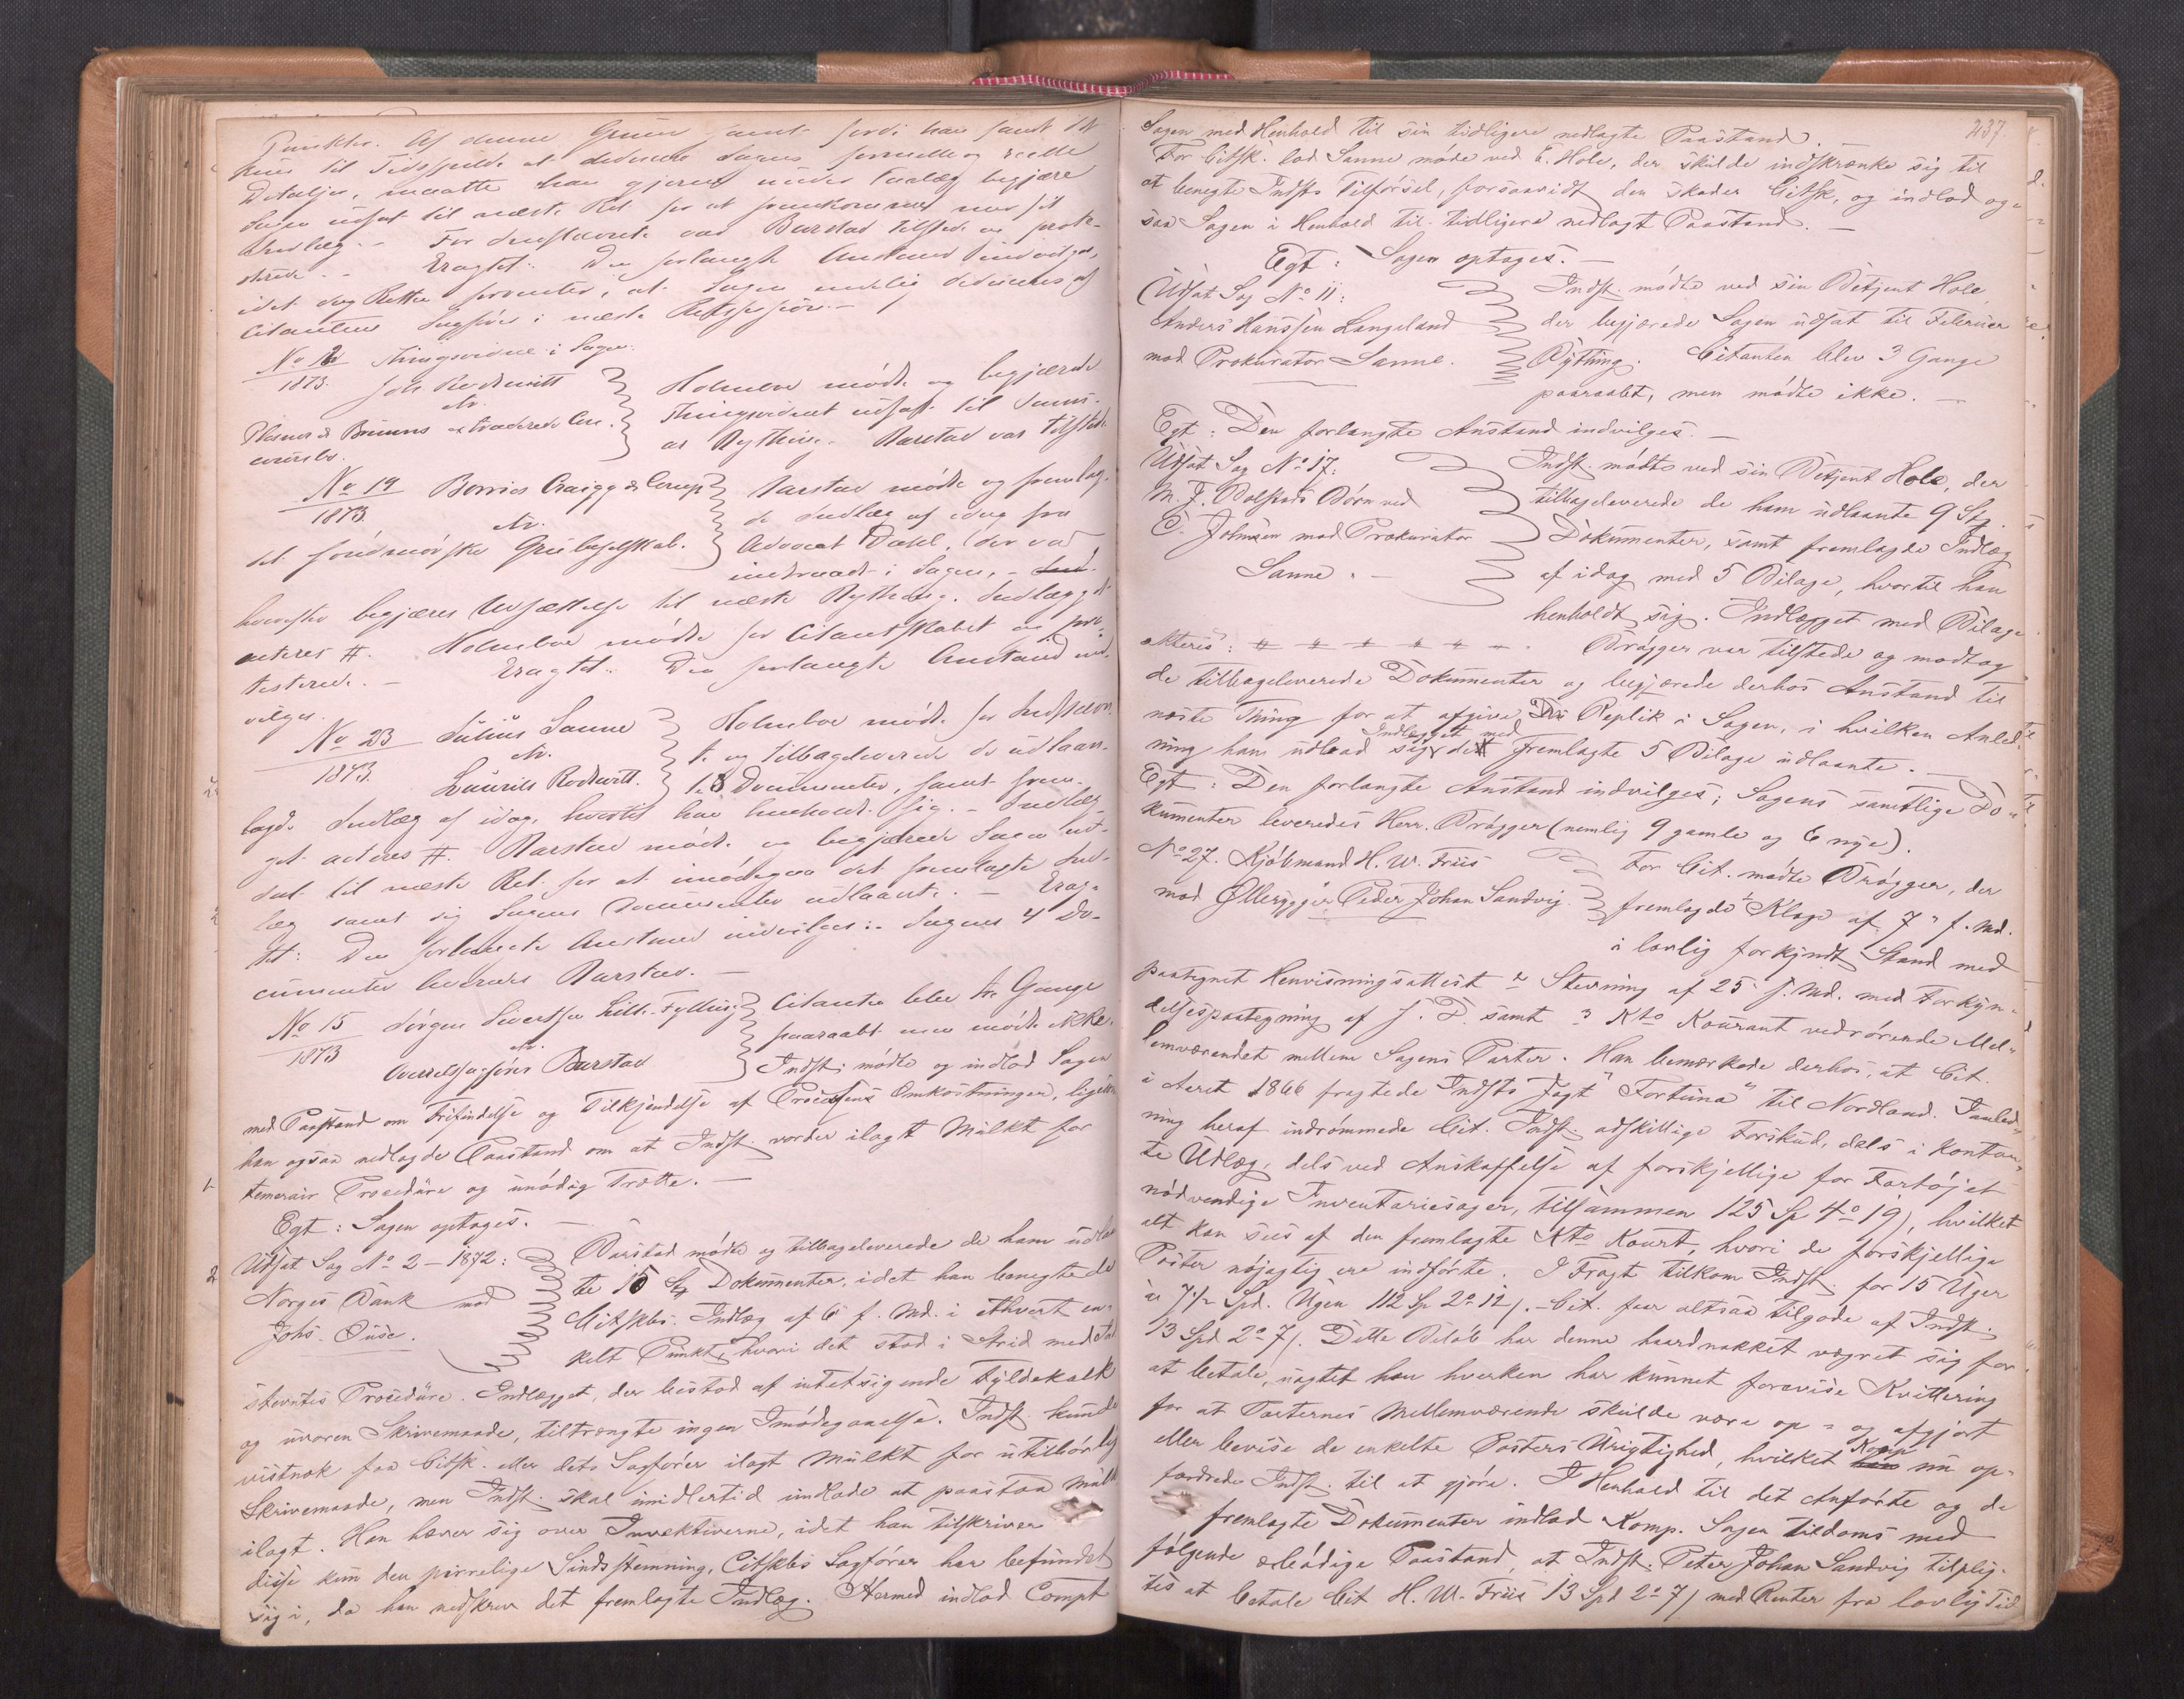 Punkter. Af denne Grund samt fordi han fandt det
kun til Tidsspilde at dedusere Sagens formelle og reelle
Detaljer, maatte han gjerne under Paalæg begjære
Sagen udsat til næste Ret for at fremkomme med sit
Indlæg. - For Indstævnte var Barstad tilstede og prote-
sterede. - Eragtet: Den forlangte Anstand indvilges,
idet dog Retten forventer, at Sagen endelig deduceres af
Citantens Sagfører i næste Retssession. -
No 12 Thingsvidne i Sagen
1873. Joh. Rodtwitt
ctr.
Holmboe mødte og begjærede
Thingsvidnet udsatt til Janu-
ar Bything. Barstad var tilstede.
No 19 Borries Craigg & Comp
1873.
ctr.
det søndmørske Grubeselskab.
Barstad mødte og fremlag-
de Indlæg af idag fra
Advocat Dahl, der var
indtraadt i Sagen, -
hvorefter begjæres Udsættelse til næste Bything. Indlægget
acteres #. Holmboe mødte for Citantskabet og pro-
testerede. - Eragtet: Den forlangte Anstand ind-
vilges.
No 23 Julius Sanne
1873.
ctr.
Laurits Rodtwitt.
Holmboe mødte for Indstævn-
te og tilbageleverede de udlaan-
te 3 Documenter, samt frem-
lagde Indlæg af idag, hvortil han henholdt sig. - Indlæg-
get acteres #. Barstad mødte og begjærede Sagen ud-
sat til næste Ret for at imødegaa det fremlagte Ind-
læg samt sig Sagens Documenter udlaante. - Erag-
tet: Den forlangte Anstand indvilges: Sagens 4 Do-
cumenter leveredes Barstad. -
No 15 Jørgen Sivertsen Lille-Fylling
1873
ctr.
Overretssagfører Barstad
Citanten blev tre Gange
paaraabt men mødte ikke.
Indst. mødte og indlod Sagen
med Paastand om Frifindelse og Tilkjendelse af Processens Omkostninger, ligesom
han ogsaa nedlagde Paastand om at Indst. vorder ilagt Mulkt for
temerair Procedure og unødig Trætte. -
Egt: Sagen optages. -
Udsat Sag No 2 - 1872:
Norges Bank mod
Johs. Buse.
Barstad mødte og tilbageleverede de ham udlaan
te 15 St Dokumenter, idet han benegtede
Citskbs. Indlæg af 6 f. Md. i ethvert en-
kelt Punkt, hvori det stod i Strid med
stævntes Procedure. Indlægget, der bestod af intetsigende Fyldekalk
og uvoren Skrivemaade, tiltrængte ingen Imødegaaelse. Indst. kunde
vistnok faa Citsk. eller dets Sagfører ilagt Mulkt for utilbørlig
Skrivemaade, men Indst. skal imidlertid undlade at paastaa Mulkt
ilagt. Han hæver sig over Invektiverne, idet han tilskriver
disse kun den pirrelige Sindsstemning, Citskbs Sagfører har befundet
sig i, da han nedskrev det fremlagte Indlæg. Hermed indlod Compt
237.
Sagen med Henhold til sin tidligere nedlagte Paastand.
For Citsk. lod Sanne møde ved E. Hole, der skulde indskrænke sig til
at benegte Indsts Tilførsel, forsaavidt den skader Citsk, og indlod og-
saa Sagen i Henhold til tidligere nedlagt Paastand. -
Egt: Sagen optages. -
Udsat Sag No 11:
Anders Hanssen Langeland
mod Prokurator Sanne.
Indst. mødte ved sin Betjent Hole,
der begjærede Sagen udsat til Februar
Bything. Citanten blev 3 Gange
paaraabt, men mødte ikke. -
Egt: Den forlangte Anstand indvilges. -
Udsat Sag No 17:
M. J. Bolstads Børn ved
C. Johnsen mod Prokurator
Sanne. -
Indst. mødte ved sin Betjent Hole, der
tilbageleverede de ham udlaante 9 St.
Dokumenter, samt fremlagde Indlæg
af idag med 5 Bilage, hvortil han
henholdt sig. Indlægget med Bilage
akteres: # # # # # #. Brøgger var tilstede og modtog
de tilbageleverede Dokumenter og begjærede derhos Anstand til
næste Thing for at afgive Replik i Sagen, i hvilken Anled-
ning han udbad sig Indlægget med de fremlagte 5 Bilage udlaante. -
Egt: Den forlangte Anstand indvilges; Sagens samtlige Do-
kumenter leveredes Herr. Brøgger (nemlig 9 gamle og 6 nye).
No 27. Kjøbmand H. W. Friis
mod Ølbrygger Peder Johan Sandvig.
For Cit. mødte Brøgger, der
fremlagde 1 Klage af 7 f. Md.
i lovlig forkyndt Stand med
paategnet Henvisningsattest 2 Stævning af 25 f. Md. med Forkyn-
delsespaategning af s. D. samt 3 Kto Kourant vedrørende Mel-
lemværendet mellem Sagens Parter. Han bemærkede derhos, at Cit.
i Aaret 1866 fragtede Indsts Jagt "Fortuna" til Nordland. I Anled-
ning heraf indrømmede Cit. Indst. adskillige Forskud, dels i kontan-
te Udlæg, dels ved Anskaffelse af forskjellige for Fartøjet
nødvendige Inventariesager, tilsammen 125 Sp 4 o 19 /, hvilket
alt kan sees af den fremlagte Kto Kourt, hvori de forskjellige
Poster nøjagtig ere indførte. I Fragt tilkom Indst. for 15 Uger
à 7½ Spd. Ugen 112 Sp 2 o 12 /. - Cit. faar altsaa tilgode af Indst.
13 Spd 2 o 7 /. Dette Beløb har denne haardnakket vægret sig for
at betale, uagtet han hverken har kunnet forevise Kvittering
for at Parternes Mellemværende skulde være op- og afgjort
eller bevise de enkelte Posters Urigtighed, hvilket Komp nu op-
fordrede Indst. til at gjøre. I Henhold til det Anførte og de
fremlagte Dokumenter indlod Komp. Sagen tildoms med
følgende ærbødige Paastand, at Indst. Peter Johan Sandvig tilplig-
tes at betale Cit H. W. Friis 13 Spd 2 o 7 / med Renter fra lovlig Tid